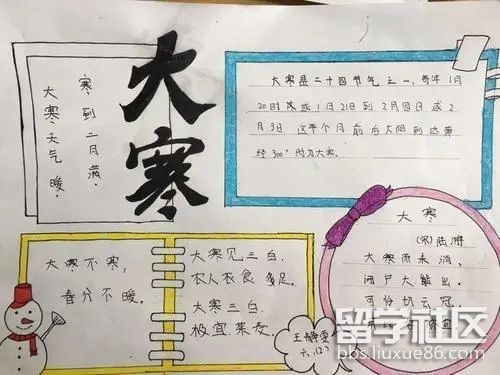 大寒
寒到二月满.
大寒天气暖.
大寒是二十四节气之一，每年1月
20时或1月21日到2月四日或2
月3日.这半个月前后太阳到达黄
经300°时为大寒.
大寒不寒，
春分不暖.
大寒见三白.
农人衣食足.
大寒三白.
极宜菜麦
大寒
(宋)陆游
大寒雪未消，
闭户不能出.
可怜切云冠，
留学社区
bbs.liuxue86.com